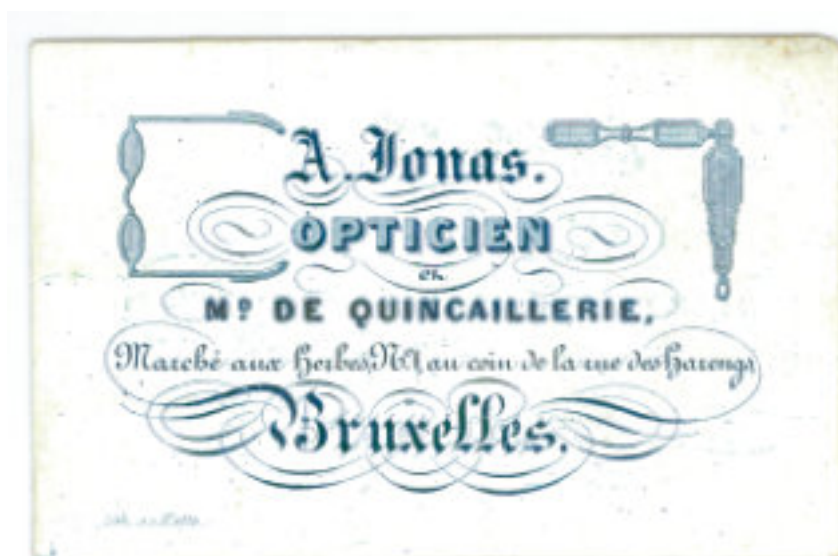 A. Jonas.
OPTICIEN
en
Md. DE QUINCAILLERIE,
Marché aux Herbes, No. au coin de la rue des Harengs
Bruxelles.